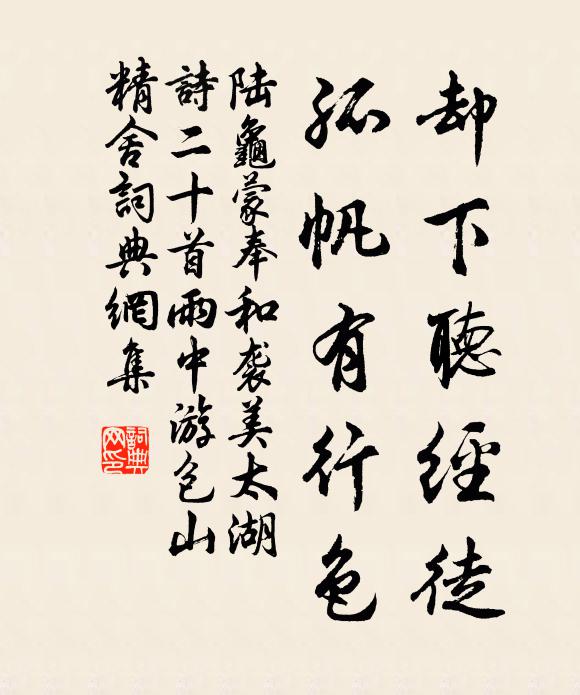 却下聽經徒
孤帆有行色
陆龜蒙奉和袭美太湖
詩二十首雨中游包山
精舍詞典網集
詞典
网印